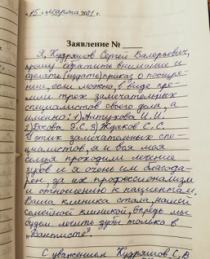 «15» марта 2021 г.
Заявление №
Я, Кудряшов Сергей Валерьевич,
прошу обратить внимание и
сделать (издать) приказ о поощре-
нии, если можно, в виде пре-
мии трёх замечательных
специалистов своего дела, а
именно: 1) Антипова И. И.
2) Босова В. С. 3) Жданов С. С.
У этих замечательных спе-
циалистов, я и вся моя
семья проходим лечение
зубов и я очень им благода-
рен, за их профессионализм
и отношению к пациентам.
Ваша клиника стала нашей
семейной клиникой, впредь мы
будем лечить зубы только в
"Дантисте".
С уважением Кудряшов С. В.